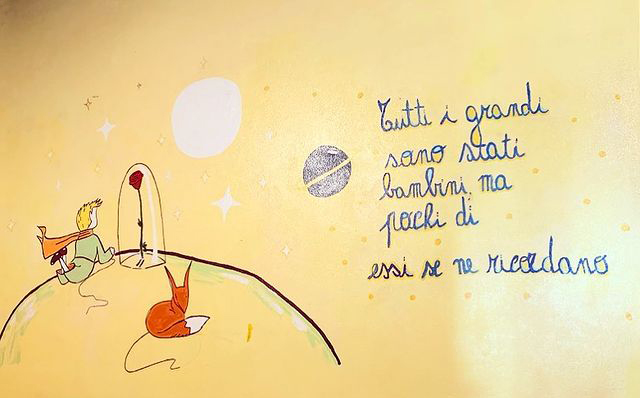 Tutti i grandi
sono stati
bambini ma
pochi di
essi se ne ricordano